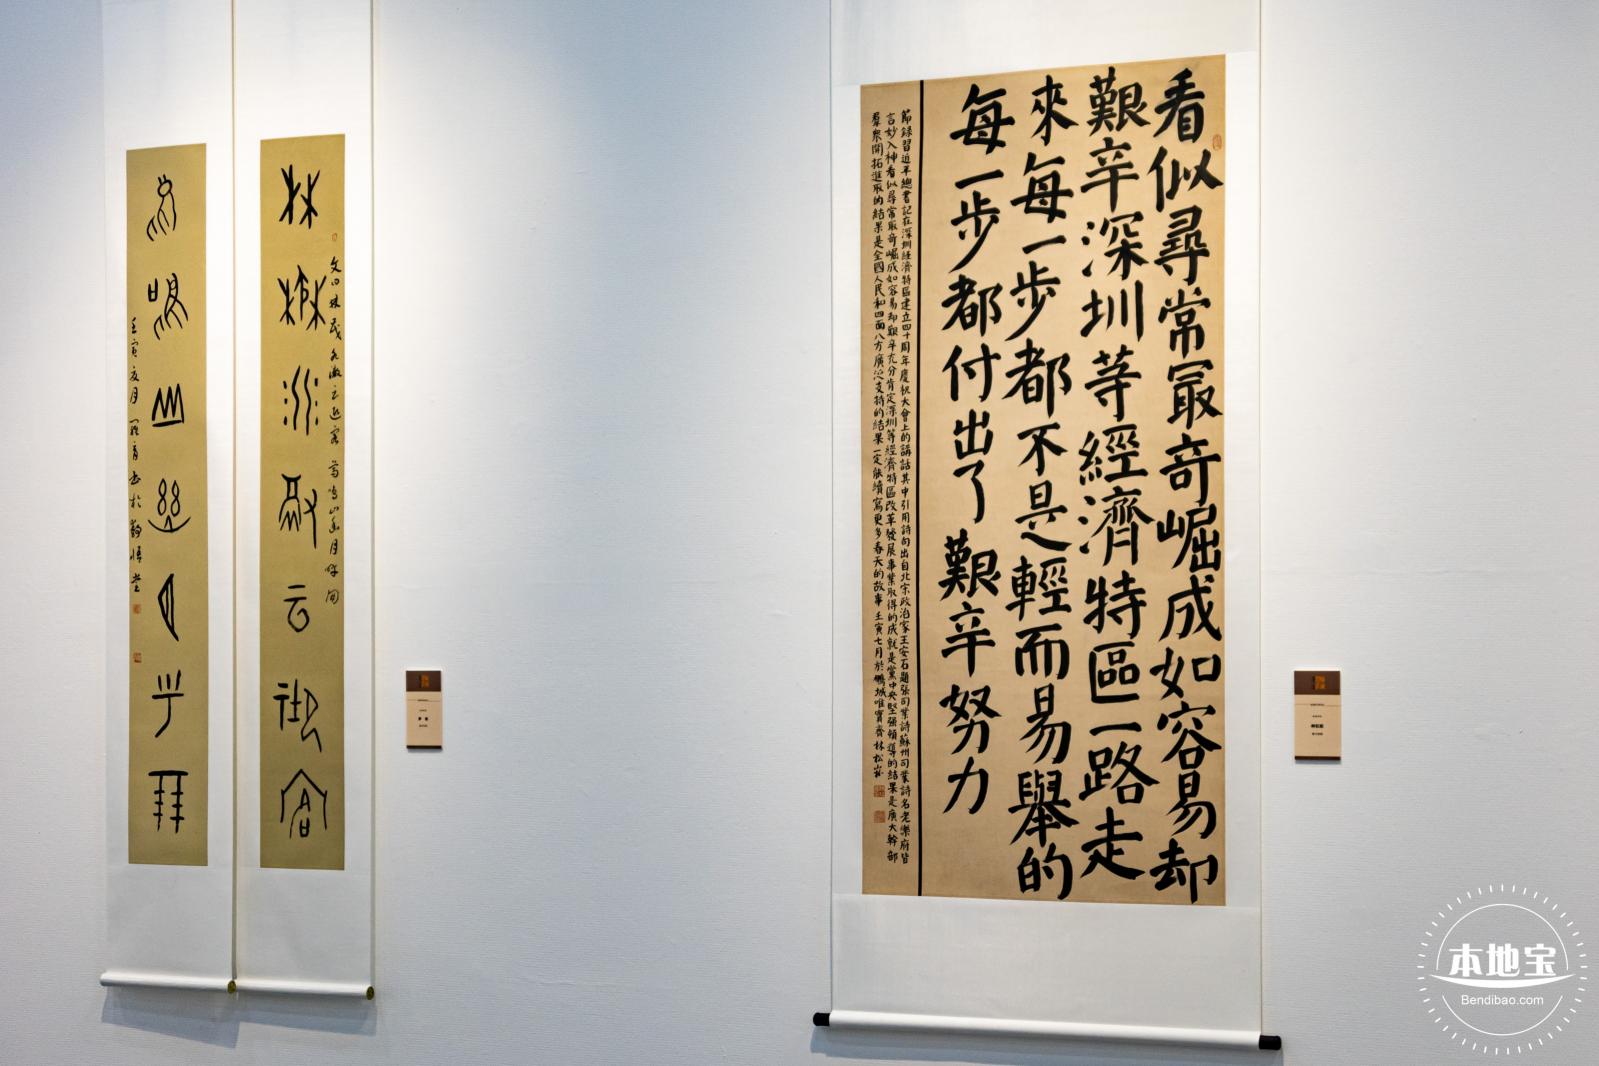 看似尋常最奇崛成如容易却
艱辛深圳等經濟特區一路走
來每一步都不是輕而易舉的
每一步都付出了艱辛努力
節錄習近平總書記在深圳經濟特區建立四十周年慶祝大會上的講話其中引用詩句出自北宋政治家王安石題張司業詩蘇州司業詩名老樂府皆
言妙入神看似尋常最奇崛成如容易却艱辛充分肯定深圳等經濟特區改革發展事業取得的成就是黨中央堅強領導的結果是廣大幹部
羣衆開拓進取的結果是全國人民和四面八方廣泛支持的結果一定能續寫更多春天的故事 壬寅七月於鵬城唯實齋林松
文曰林茂水澂云近客 鳥鳴山幽月
林 水 云 客
鳥鳴山幽月
壬寅夏月 書於
本地宝
Bendibao.com